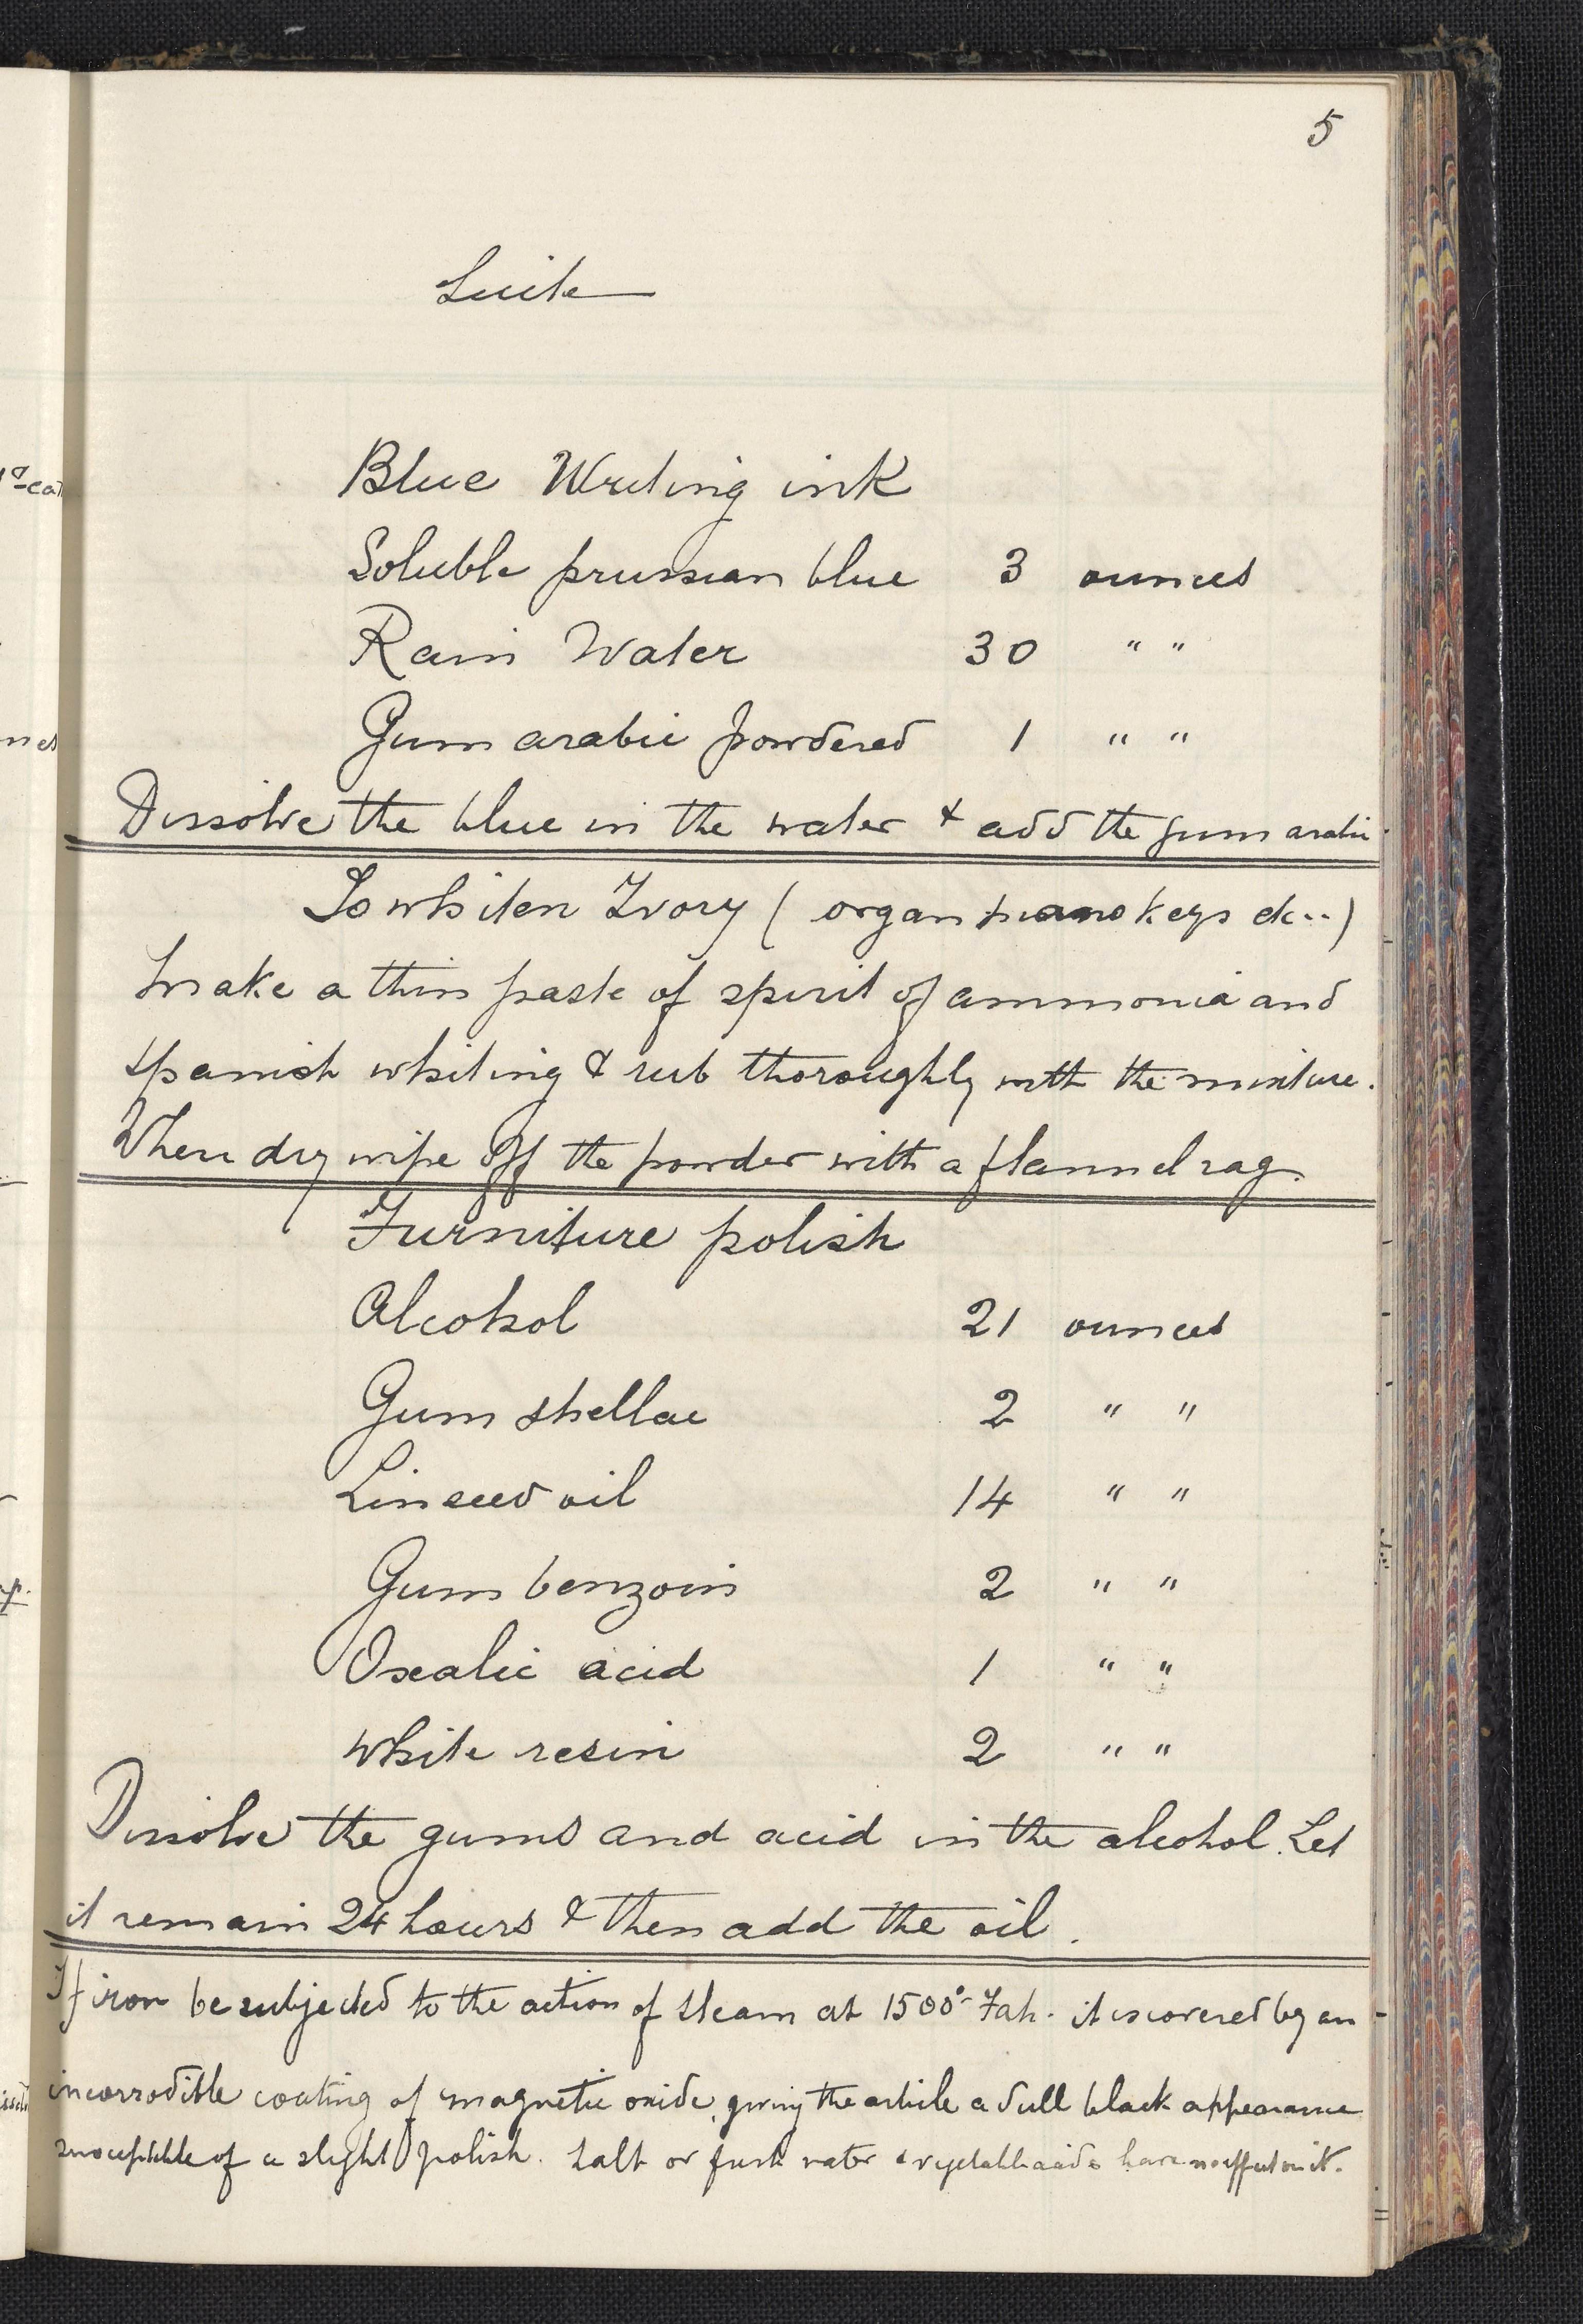 5
Suite
Blue Writing ink
Soluble prussian blue 3 ounces
Rain Water 30 " "
Gum arabic powdered 1 " "
Dissolve the blue in the water & add the gum arabic
To whiten Ivory ( organ piano keys etc.. )
Make a thin paste of spirit of ammonia and
Spanish whiting & rub thoroughly with the mixture.
When dry wipe off the powder with a flannel rag.
Furniture polish
Alcohol 21 ounces
Gum shellac 2 " "
Linseed oil 14 " "
Gum benzoin 2 " "
Oxalic acid 1 " "
White resin 2 " "
Dissolve the gums and acid in the alcohol. Let
it remain 24 hours & then add the oil.
If iron be subjected to the action of steam at 1500° Fah. it is covered by an
incorrodible coating of magnetic oxide, giving the article a dull black appearance
susceptible of a slight polish. Salt or fresh water & vegetable acids have no effect on it.